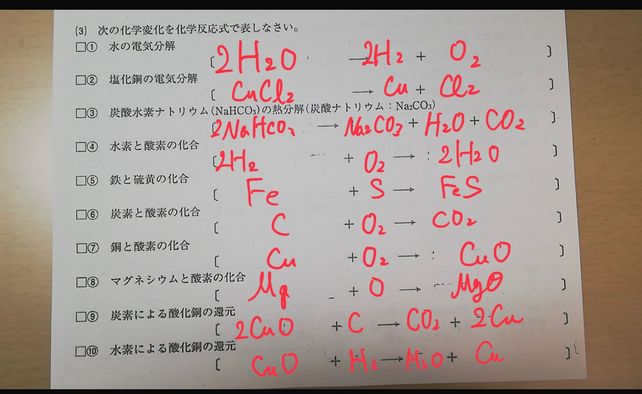 (3) 次の化学変化を化学反応式で表しなさい。
□① 水の電気分解
〔 2H₂O → 2H₂ + O₂ 〕
□② 塩化銅の電気分解
〔 CuCl₂ → Cu + Cl₂ 〕
□③ 炭酸水素ナトリウム(NaHCO₃)の熱分解(炭酸ナトリウム:Na₂CO₃)
〔 2NaHCO₃ → Na₂CO₃ + H₂O + CO₂ 〕
□④ 水素と酸素の化合
〔 2H₂ + O₂ → 2H₂O 〕
□⑤ 鉄と硫黄の化合
〔 Fe + S → FeS 〕
□⑥ 炭素と酸素の化合
〔 C + O₂ → CO₂ 〕
□⑦ 銅と酸素の化合
〔 Cu + O₂ → CuO 〕
□⑧ マグネシウムと酸素の化合
〔 Mg + O → MgO 〕
□⑨ 炭素による酸化銅の還元
〔 2CuO + C → CO₂ + 2Cu 〕
□⑩ 水素による酸化銅の還元
〔 CuO + H₂ → H₂O + Cu 〕